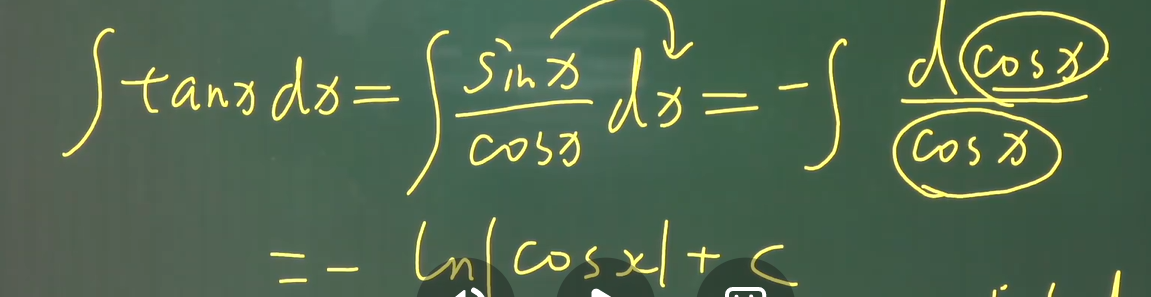 ∫ tanx dx = ∫ sinx/cosx dx = -∫ d cosx/cosx
= - ln|cosx| + c